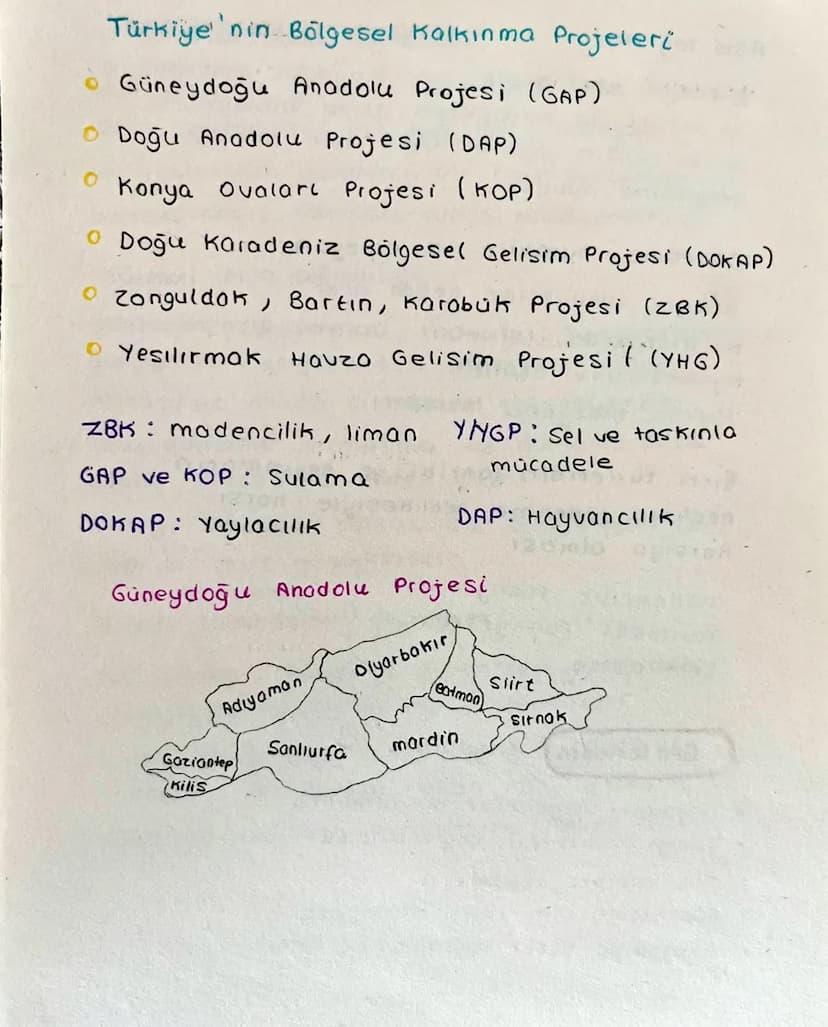 Türkiye'nin Bölgesel Kalkınma Projeleri
Güneydoğu Anadolu Projesi (GAP)
Doğu Anadolu Projesi (DAP)
Konya Ovaları Projesi (KOP)
Doğu Karadeniz Bölgesel Gelisim Projesi (DOKAP)
Zonguldak, Bartın, Karabük Projesi (ZBK)
Yesılırmak Havza Gelisim Projesi (YHG)
ZBK: madencilik, liman
GAP ve KOP: Sulama
DOKAP: Yaylacılık
YHGP: Sel ve taskınla
mücadele
DAP: Hayvancılık
Güneydoğu Anadolu Projesi
Diyarbakır
Adıyaman
Batman
Siirt
Sırnak
Gaziantep
Sanlıurfa
mardin
Kilis